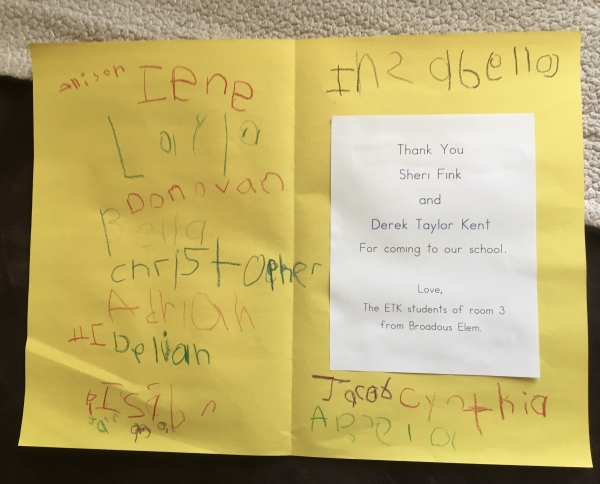 anison Irene
Layla
Donovan
Bella
christopher
Adrian
Delilah
Inzabella
Thank You
Sheri Fink
and
Derek Taylor Kent
For coming to our school.
Love,
The ETK students of room 3
from Broadous Elem.
Jacob Cynthia